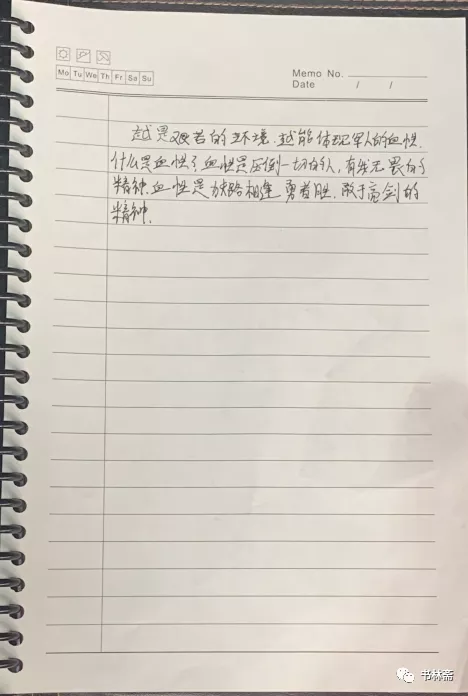 Mo Tu We Th Fr Sa Su
Memo No.
Date / /
越是艰苦的环境.越能体现军人的血性.
什么是血性?血性是压倒一切的人,有我无畏的
精神.血性是狭路相逢勇者胜.敢于亮剑的
精神.
书林斋